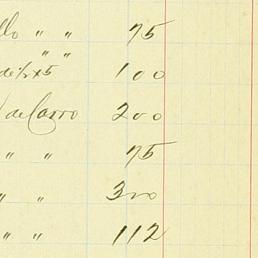 llo " " 75
" "
de ½ x 5 100
de Castro 200
" " 75
" " 300
" " 112